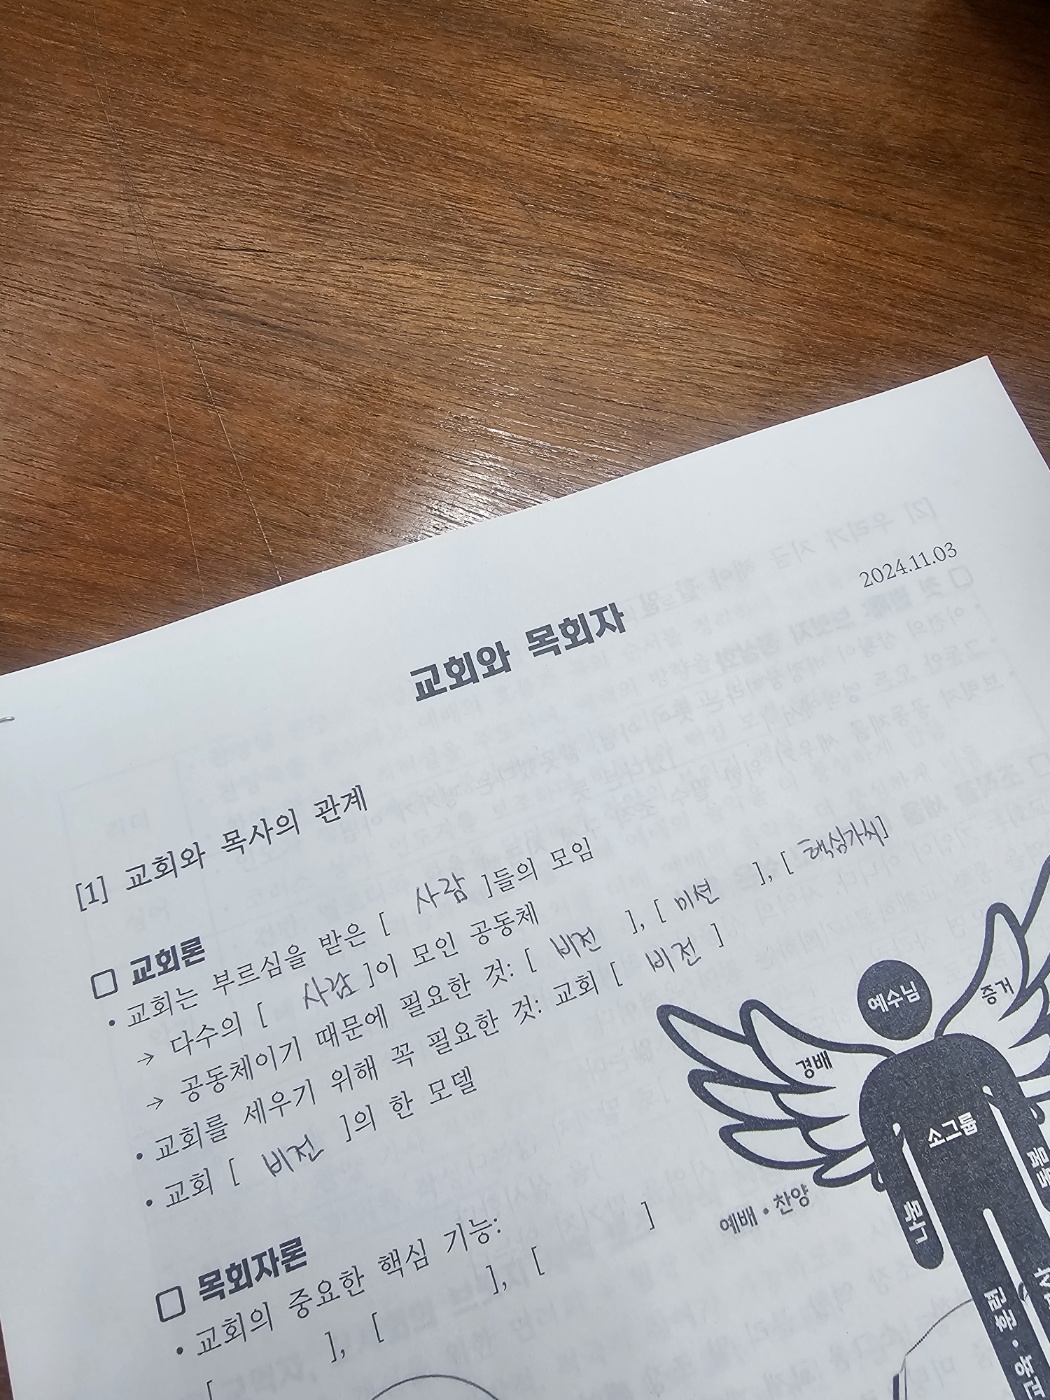 2024.11.03
교회와 목회자
[1] 교회와 목사의 관계
□ 교회론
• 교회는 부르심을 받은 [ 사람 ]들의 모임
→ 다수의 [ 사람 ]이 모인 공동체
→ 공동체이기 때문에 필요한 것: [ 비전 ], [ 미션 ], [ 핵심가치 ]
• 교회를 세우기 위해 꼭 필요한 것: 교회 [ 비전 ]
• 교회 [ 비전 ]의 한 모델
예수님
증거
경배
소그룹
예배 • 찬양
□ 목회자론
• 교회의 중요한 핵심 기능:
[ ], [ ], [ ]